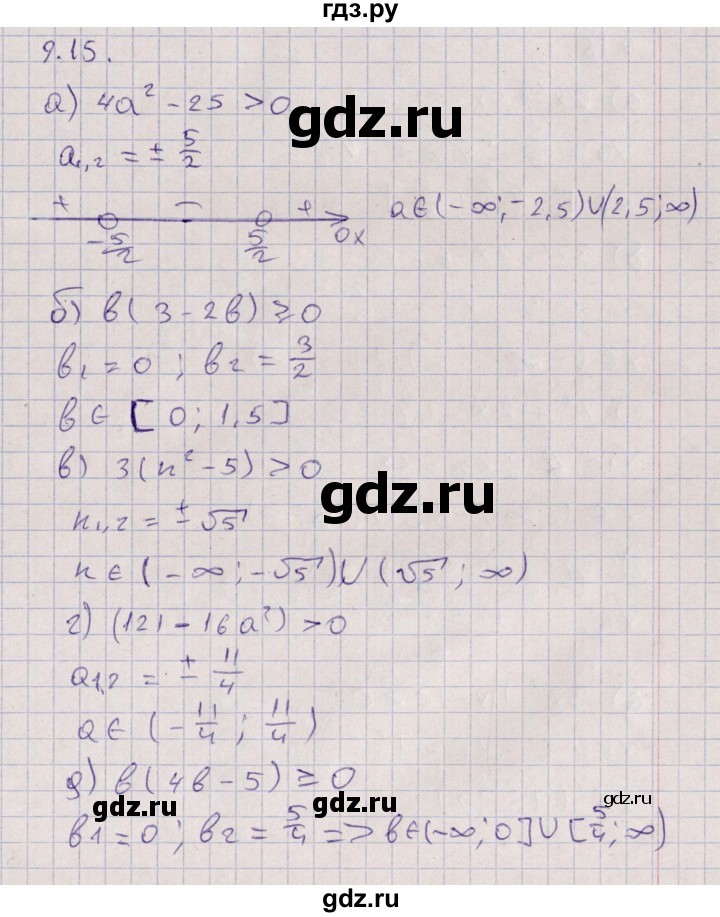 гдз.ру
9.15.
а) 4a² - 25 > 0
a₁,₂ = ± 5/2
+ - +
-5/2 5/2 0x a ∈ (-∞; -2,5) ∪ (2,5; ∞)
gdz.ru
б) в(3 - 2в) ≥ 0
в₁ = 0 ; в₂ = 3/2
в ∈ [0; 1,5]
в) 3(n² - 5) > 0
gdz.ru
n₁,₂ = ± √5
n ∈ (-∞; -√5) ∪ (√5; ∞)
г) (121 - 16a²) > 0
a₁,₂ = ± 11/4
a ∈ (- 11/4 ; 11/4)
д) в(4в - 5) ≥ 0
gdz.ru gdz.ru gdz.ru
в1 = 0 ; в₂ = 5/4 => в ∈ (-∞; 0] ∪ [5/4; ∞)
gdz.ru